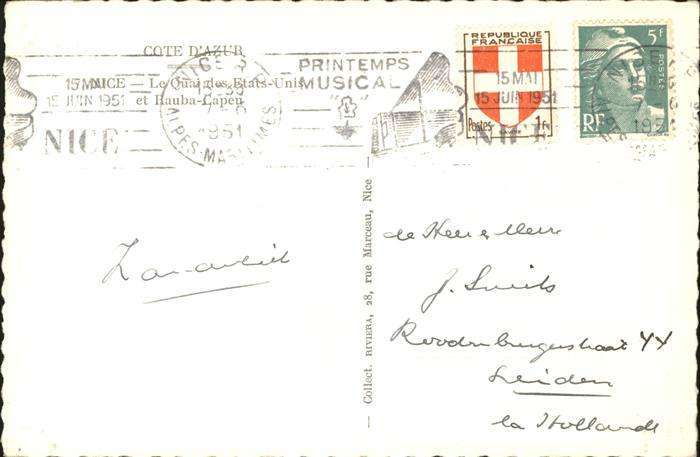 COTE D'AZUR
NICE — Le Quai des Etats-Unis
et Rauba-Capeu
15 MAI
15 JUIN 1951
NICE
NICE R.P.
1951
ALPES-MARITIMES
PRINTEMPS
MUSICAL
15 MAI
15 JUIN 1951
NICE
REPUBLIQUE
FRANÇAISE
Postes 1f
5F
POSTES
RF
Collect. RIVIERA, 28, rue Marceau, Nice
de Heer &
J. Smits
Roodenburgerstraat 44
Leiden
la Hollande